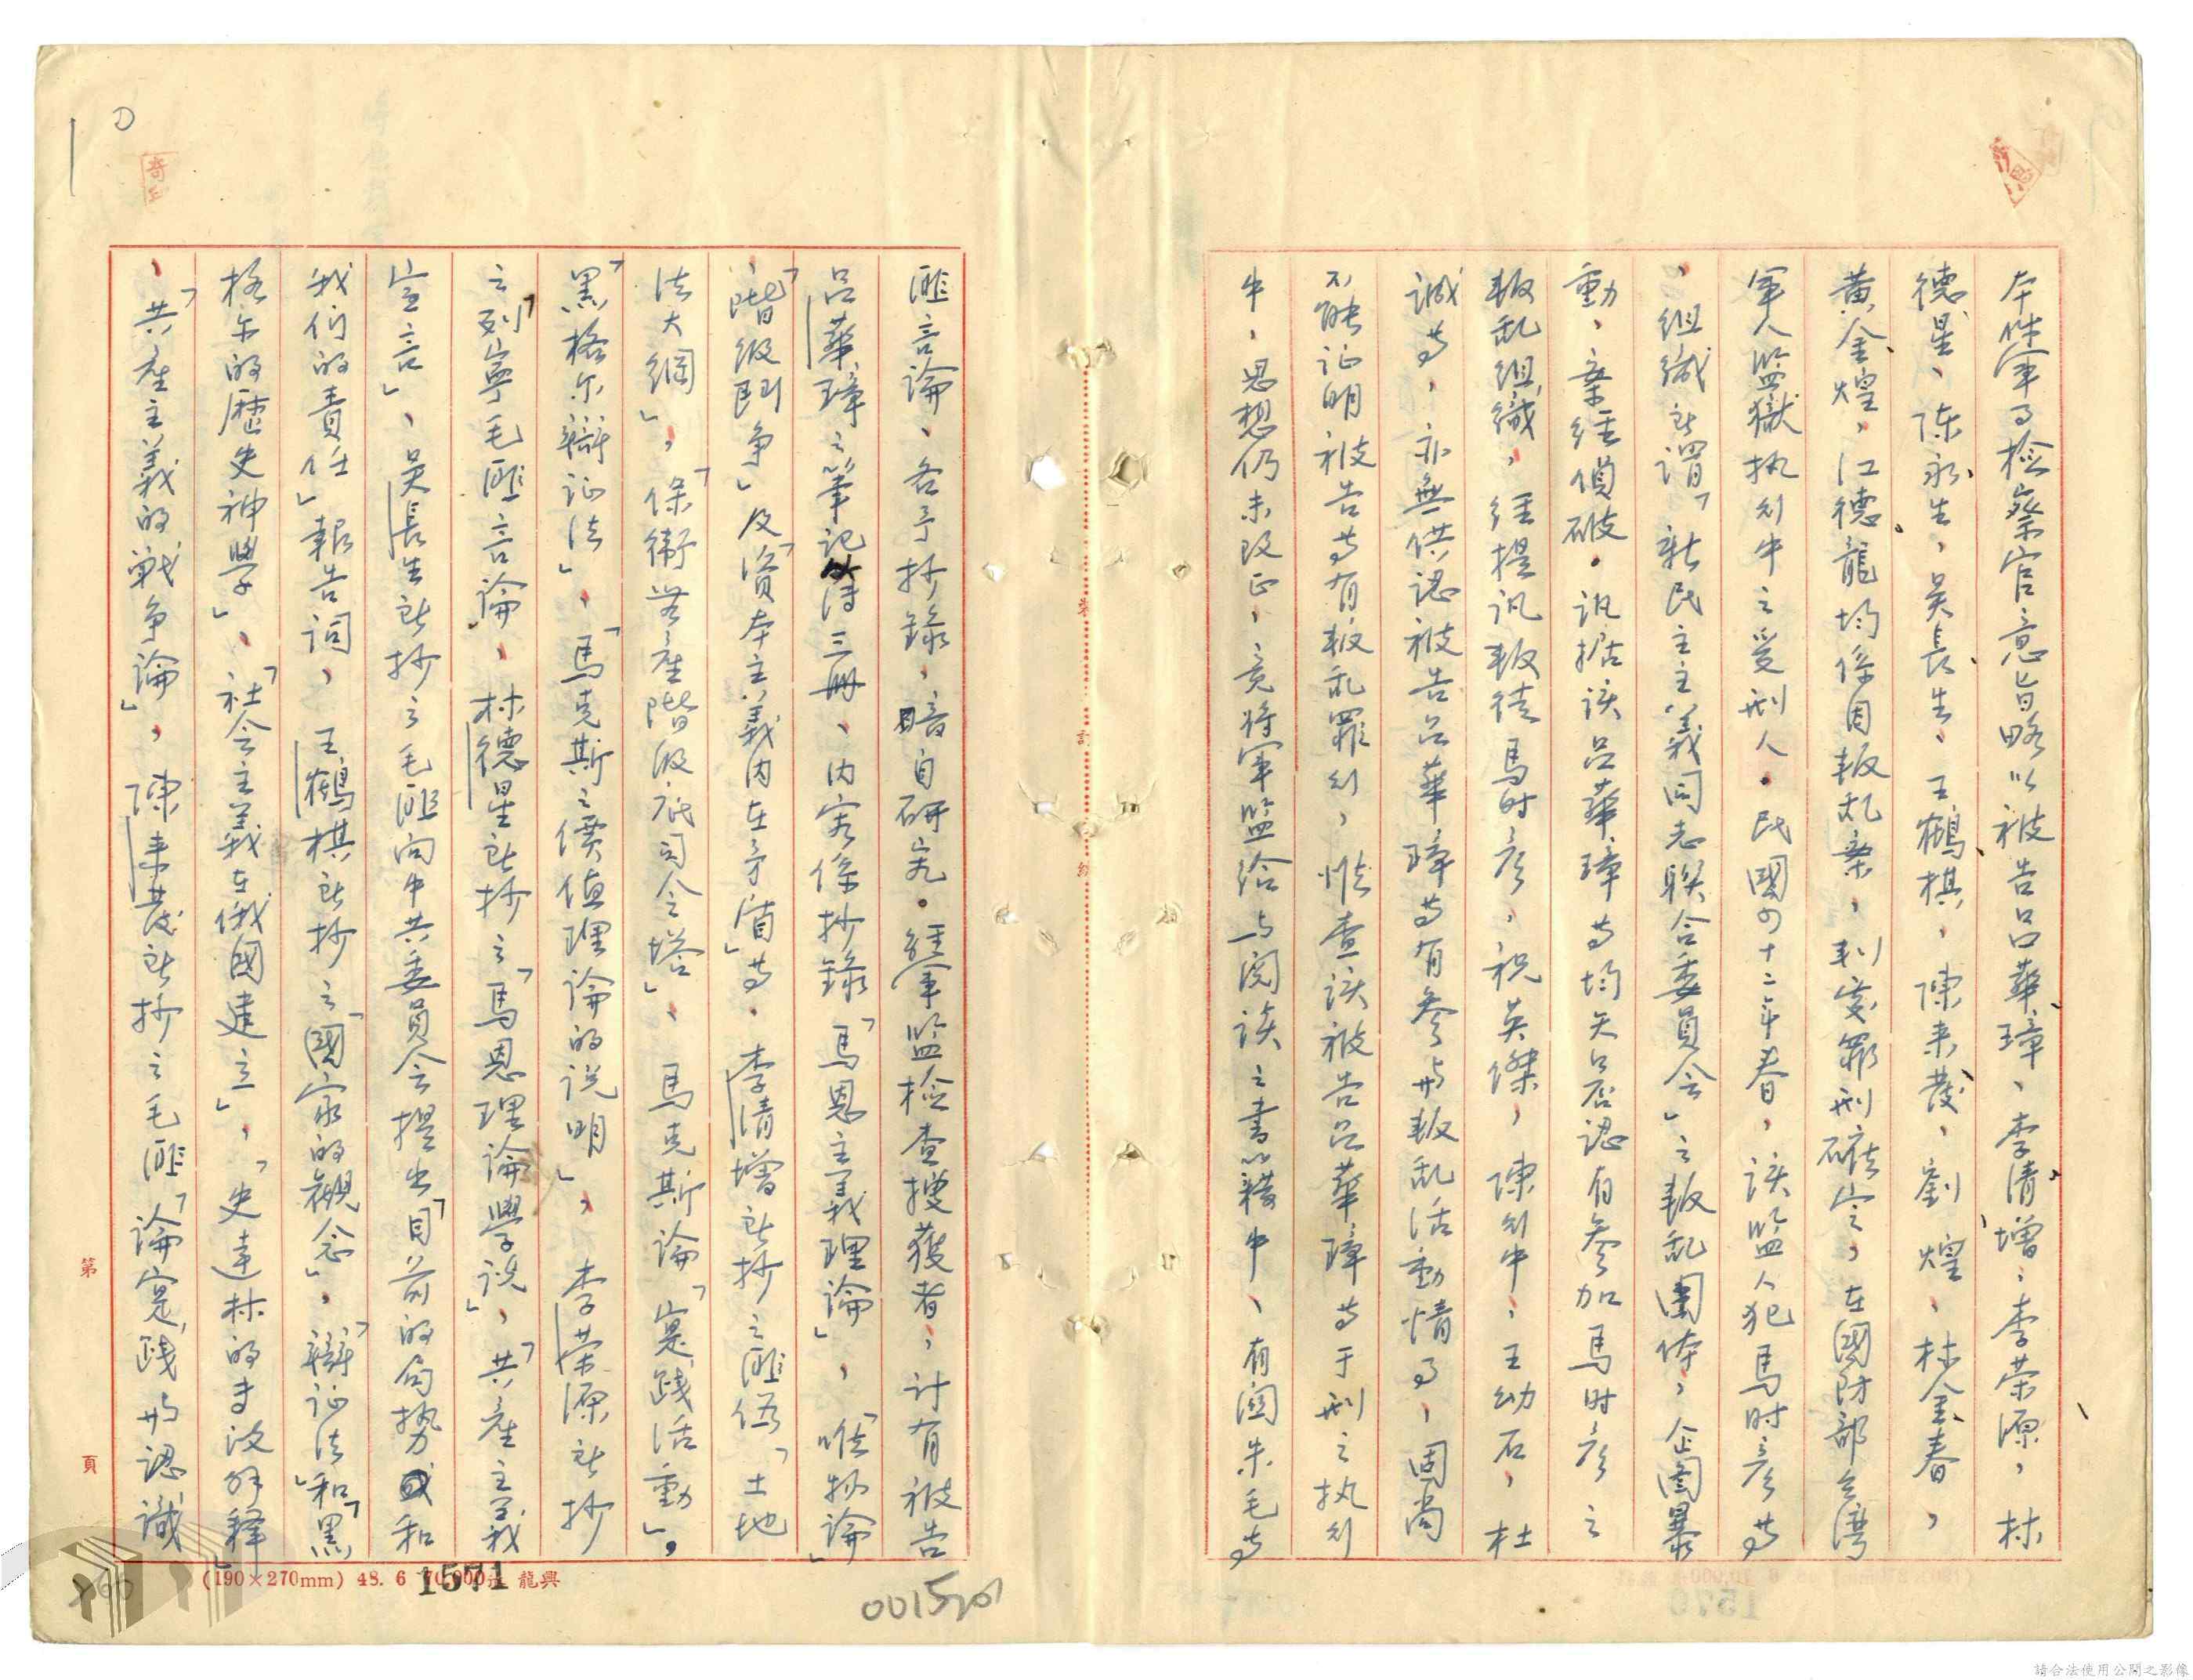 本件軍事檢察官意旨略以被告呂華璋、李清增、李荣源，林
德星、陈永生，吴長生、王鶴棋，陳来發，劉煌、林金春，
黄金煌，江德龍均係因叛乱案，判處罪刑確定，在國防部台灣
軍人監獄执行中之受刑人。民國四十二年春，該監人犯馬时彦等
，組織所謂「新民主主義同志聯合委員会」之叛乱團体，企圖暴
動，案經偵破。訊据該呂華璋等均矢口否認有參加馬时彦之
叛乱組織，經提訊叛徒馬时彦，祝英傑，陳行中，王幼石，杜
誠等，亦無供認被告呂華璋等有參與叛乱活動情事，固尚
不能证明被告等有叛乱罪行，惟查該被告呂華璋等于刑之执行
中，思想仍未改正，竟将軍监给与阅讀之書籍中，有関朱毛等
匪言論，各予抄錄，暗自研究。經軍监检查搜獲者，计有被告
呂華璋之筆记簿三冊，内容係抄錄「馬恩主義理論」，「唯物論」
，「階级鬥争」及「資本主義内在矛盾」等。李清增所抄之匪伍「土地
法大綱」，「保衛无産階级底司令塔」、馬克斯論「寔踐活動」，
「黑格尔辯证法」，「馬克斯之價值理論的说明」，李荣源所抄
之「列寧毛匪言論，林德星所抄之「馬恩理論學说」，「共產主義
宣言」，吴長生所抄之毛匪向中共委員会提出「目前的局势和
我们的責任」報告詞，王鶴棋所抄之「國家的觀念」，「辯证法」和「黑
格尔的歷史神學」，「社会主義在俄國建立」，「史達林的才政解释」
，「共產主義的戦争論」，陳来發所抄之毛匪「論寔踐與認識
第 頁
(190×270mm) 48. 6 70,000张 龍興
1571
裝 訂 線
請合法使用公開之影像